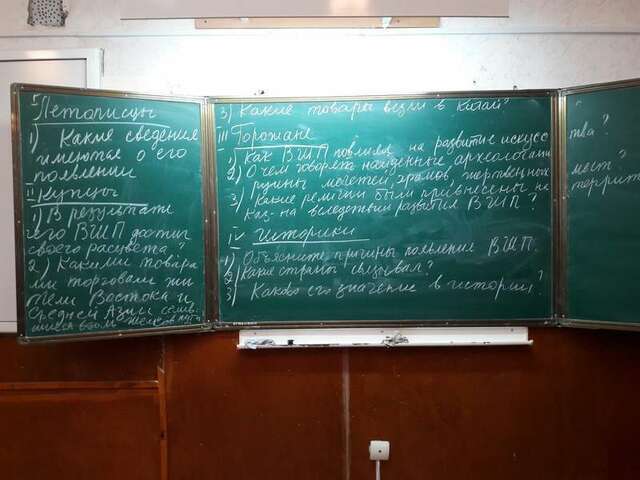 I
Летописцы
1) Какие сведения
имеются о его
появлении
II Купцы
1) В результате
чего ВШП достиг
своего расцвета?
2) Какими товара
ми торговали жи
тели Востока и
Средней Азии
3) Какие товары везли в Китай?
III Горожане
1) Как ВШП повлиял на развитие искусс
тва?
2) О чем говорят найденные археологами
руины мечетей, храмов, жертвенных
мест?
3) Какие религии были привнесены на
террит
Каз-на вследствии развития ВШП?
IV Историки
1) Объясните причины появления ВШП.
2) Какие страны связывал?
3) Каково его значение в истории?